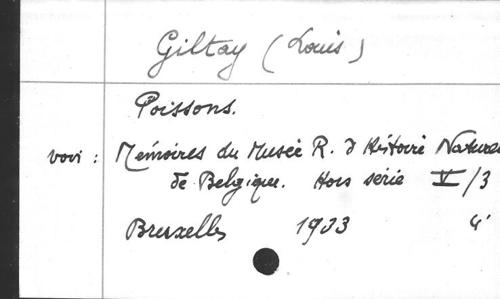 Giltay (Louis)
Poissons.
voir : Mémoires du Musée R. d'Histoire Naturel
de Belgique. Hors série V/3
Bruxelles 1933 4°